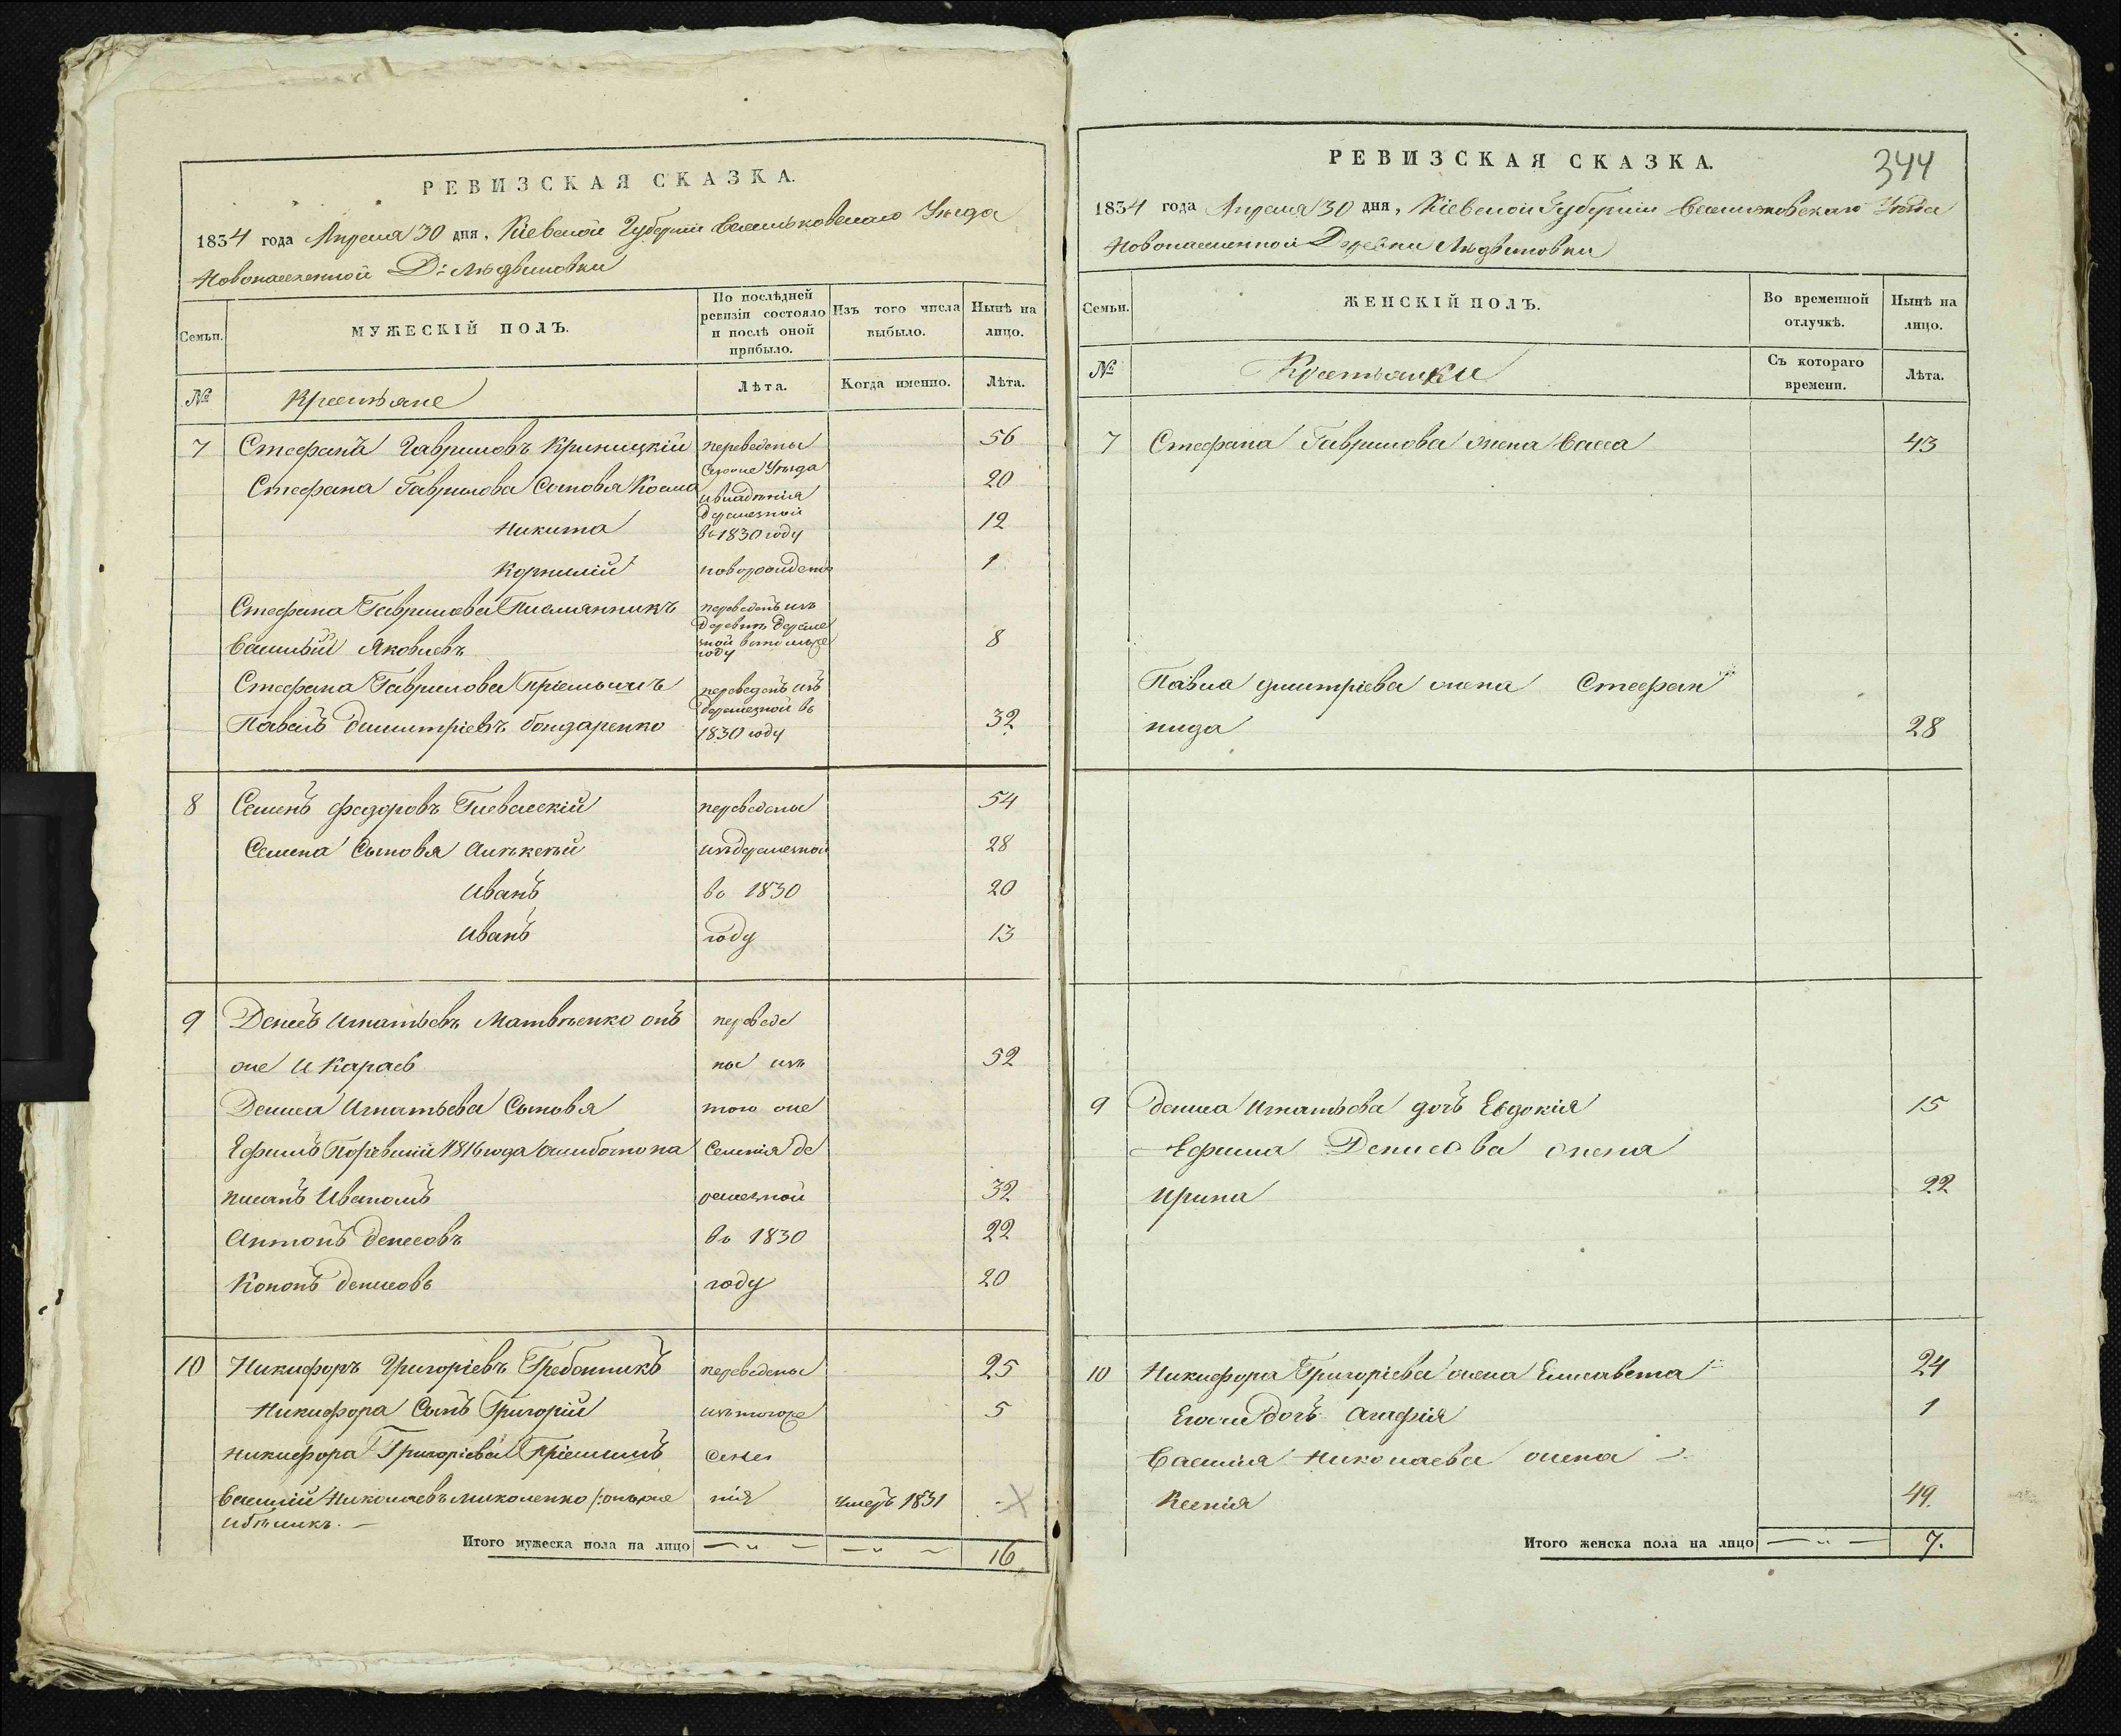 РЕВИЗСКАЯ СКАЗКА.
1834 года Апреля 30 дня, Кіевской Губерніи Васильковскаго Уѣзда
Новонаселенной Д: Людвиновки
Семьи.
МУЖЕСКІЙ ПОЛЪ.
По послѣдней ревизіи состояло и послѣ оной прибыло.
Изъ того числа выбыло.
Нынѣ на лицо.
№
Крестьяне
Лѣта.
Когда именно.
Лѣта.
7 Стефанъ Гавриловъ Криницкій переведены 56
Стефана Гаврилова Сыновья Косма сегоже Уѣзда 20
изъ
Никита во 1830 году 12
Корнилій новорожденъ 1
Стефана Гаврилова Племянникъ переведенъ изъ
деревни
Василій Яковлевъ 8
году
Стефана Гаврилова Пріемышъ переведенъ изъ
Павелъ Димитріевъ бондаренко 1830 году 32
8 Семенъ Федоровъ переведены 54
Семена Сыновья Алѣксѣй 28
Иванъ во 1830 20
Иванъ году 13
9 Денисъ Игнатьевъ Матвѣенко онъ переведе
же и Карась ны изъ 52
Дениса Игнатьева Сыновья того же
Ефимъ 1816 года ошибочно на селенія де
писанъ Иваномъ 32
Антонъ Денисовъ во 1830 22
Кононъ Денисовъ году 20
10 Никифоръ Григоріевъ Гребенникъ переведены 25
Никифора Сынъ Григорій изъ тогоже 5
Никифора Григоріева Пріемышъ селе
Василій Николаевъ Миколенко нія умеръ 1831
Итого мужеска пола на лицо 16.
РЕВИЗСКАЯ СКАЗКА.
344
1834 года Апреля 30 дня, Кіевской Губерніи Васильковскаго Уѣзда
Новонаселенной Деревни Людвиновки
Семьи.
ЖЕНСКІЙ ПОЛЪ.
Во временной отлучкѣ.
Нынѣ на лицо.
№
Крестьянки
Съ котораго времени.
Лѣта.
7 Стефана Гаврилова жена Васса 43
Павла Димитріева жена Стефан
нида 28
9 Дениса Игнатьева дочь Евдокія 15
Ефима Денисова жена
Ирина 22
10 Никифора Григоріева жена Елисавета 24
Егоже дочь Агафія 1
Василія Николаева жена
Ксенія 49.
Итого женска пола на лицо 7.